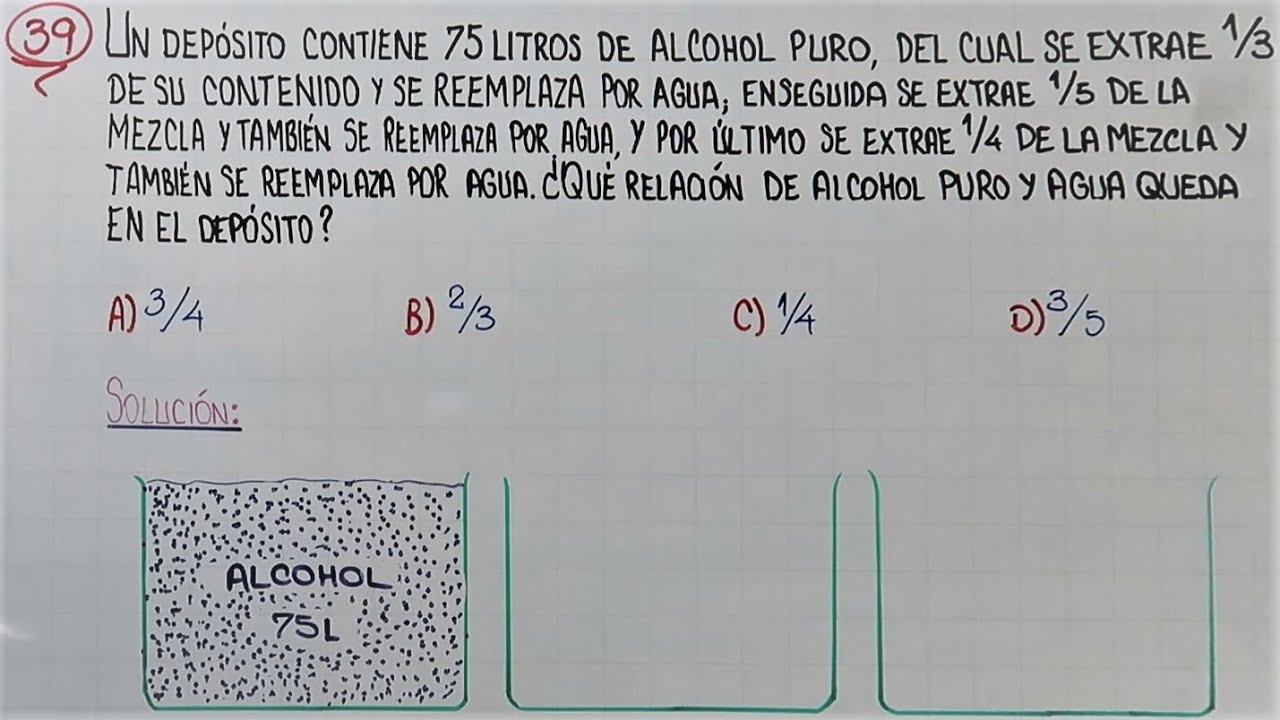 39 UN DEPÓSITO CONTIENE 75 LITROS DE ALCOHOL PURO, DEL CUAL SE EXTRAE 1/3
DE SU CONTENIDO Y SE REEMPLAZA POR AGUA; ENSEGUIDA SE EXTRAE 1/5 DE LA
MEZCLA Y TAMBIÉN SE REEMPLAZA POR AGUA, Y POR ÚLTIMO SE EXTRAE 1/4 DE LA MEZCLA Y
TAMBIÉN SE REEMPLAZA POR AGUA. ¿QUÉ RELACIÓN DE ALCOHOL PURO Y AGUA QUEDA
EN EL DEPÓSITO?
A) 3/4 B) 2/3 C) 1/4 D) 3/5
SOLUCIÓN:
ALCOHOL
75L